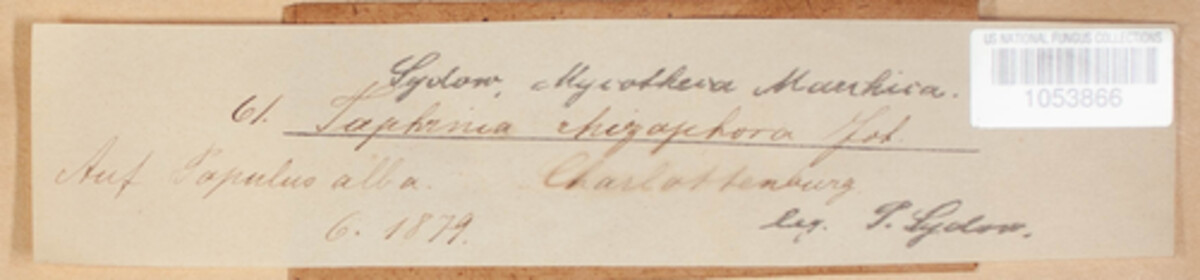 US NATIONAL FUNGUS COLLECTIONS
1053866
Sydow, Mycotheca Marchica.
61. Taphrina rhizophora Joh.
Auf Populus alba. Charlottenburg
6. 1879. leg. P. Sydow.